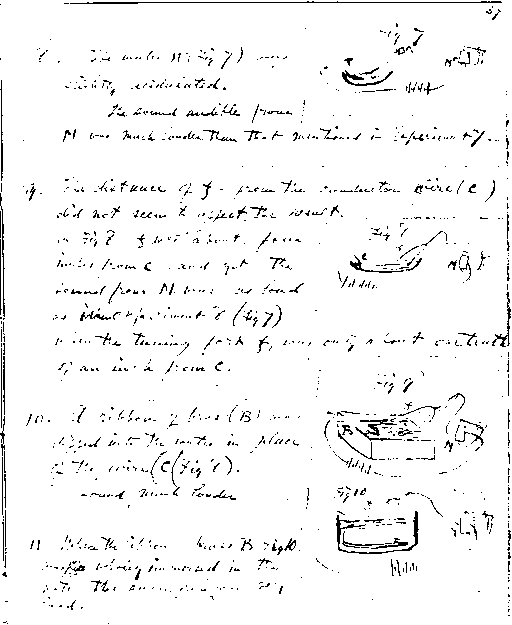 37
Fig 7
8. The water W (Fig 7) was
slightly acidulated.
The sound audible from
M was much louder than that mentioned in experiment 7.
9. The distance of f from the conductor wire (C)
did not seem to affect the result.
Fig 8
In Fig 8 f was about four
inches from C and yet the
sound from M was as loud
as in experiment 8 (Fig 7)
when the tuning fork f, was only about one tenth
of an inch from C.
Fig 9
10. A ribbon of brass (B) was
dipped into the water in place
of the wire (C (Fig 8).
Sound much louder
Fig 10
11 When the ribbon brass B
wholly immersed in the
the
loud.